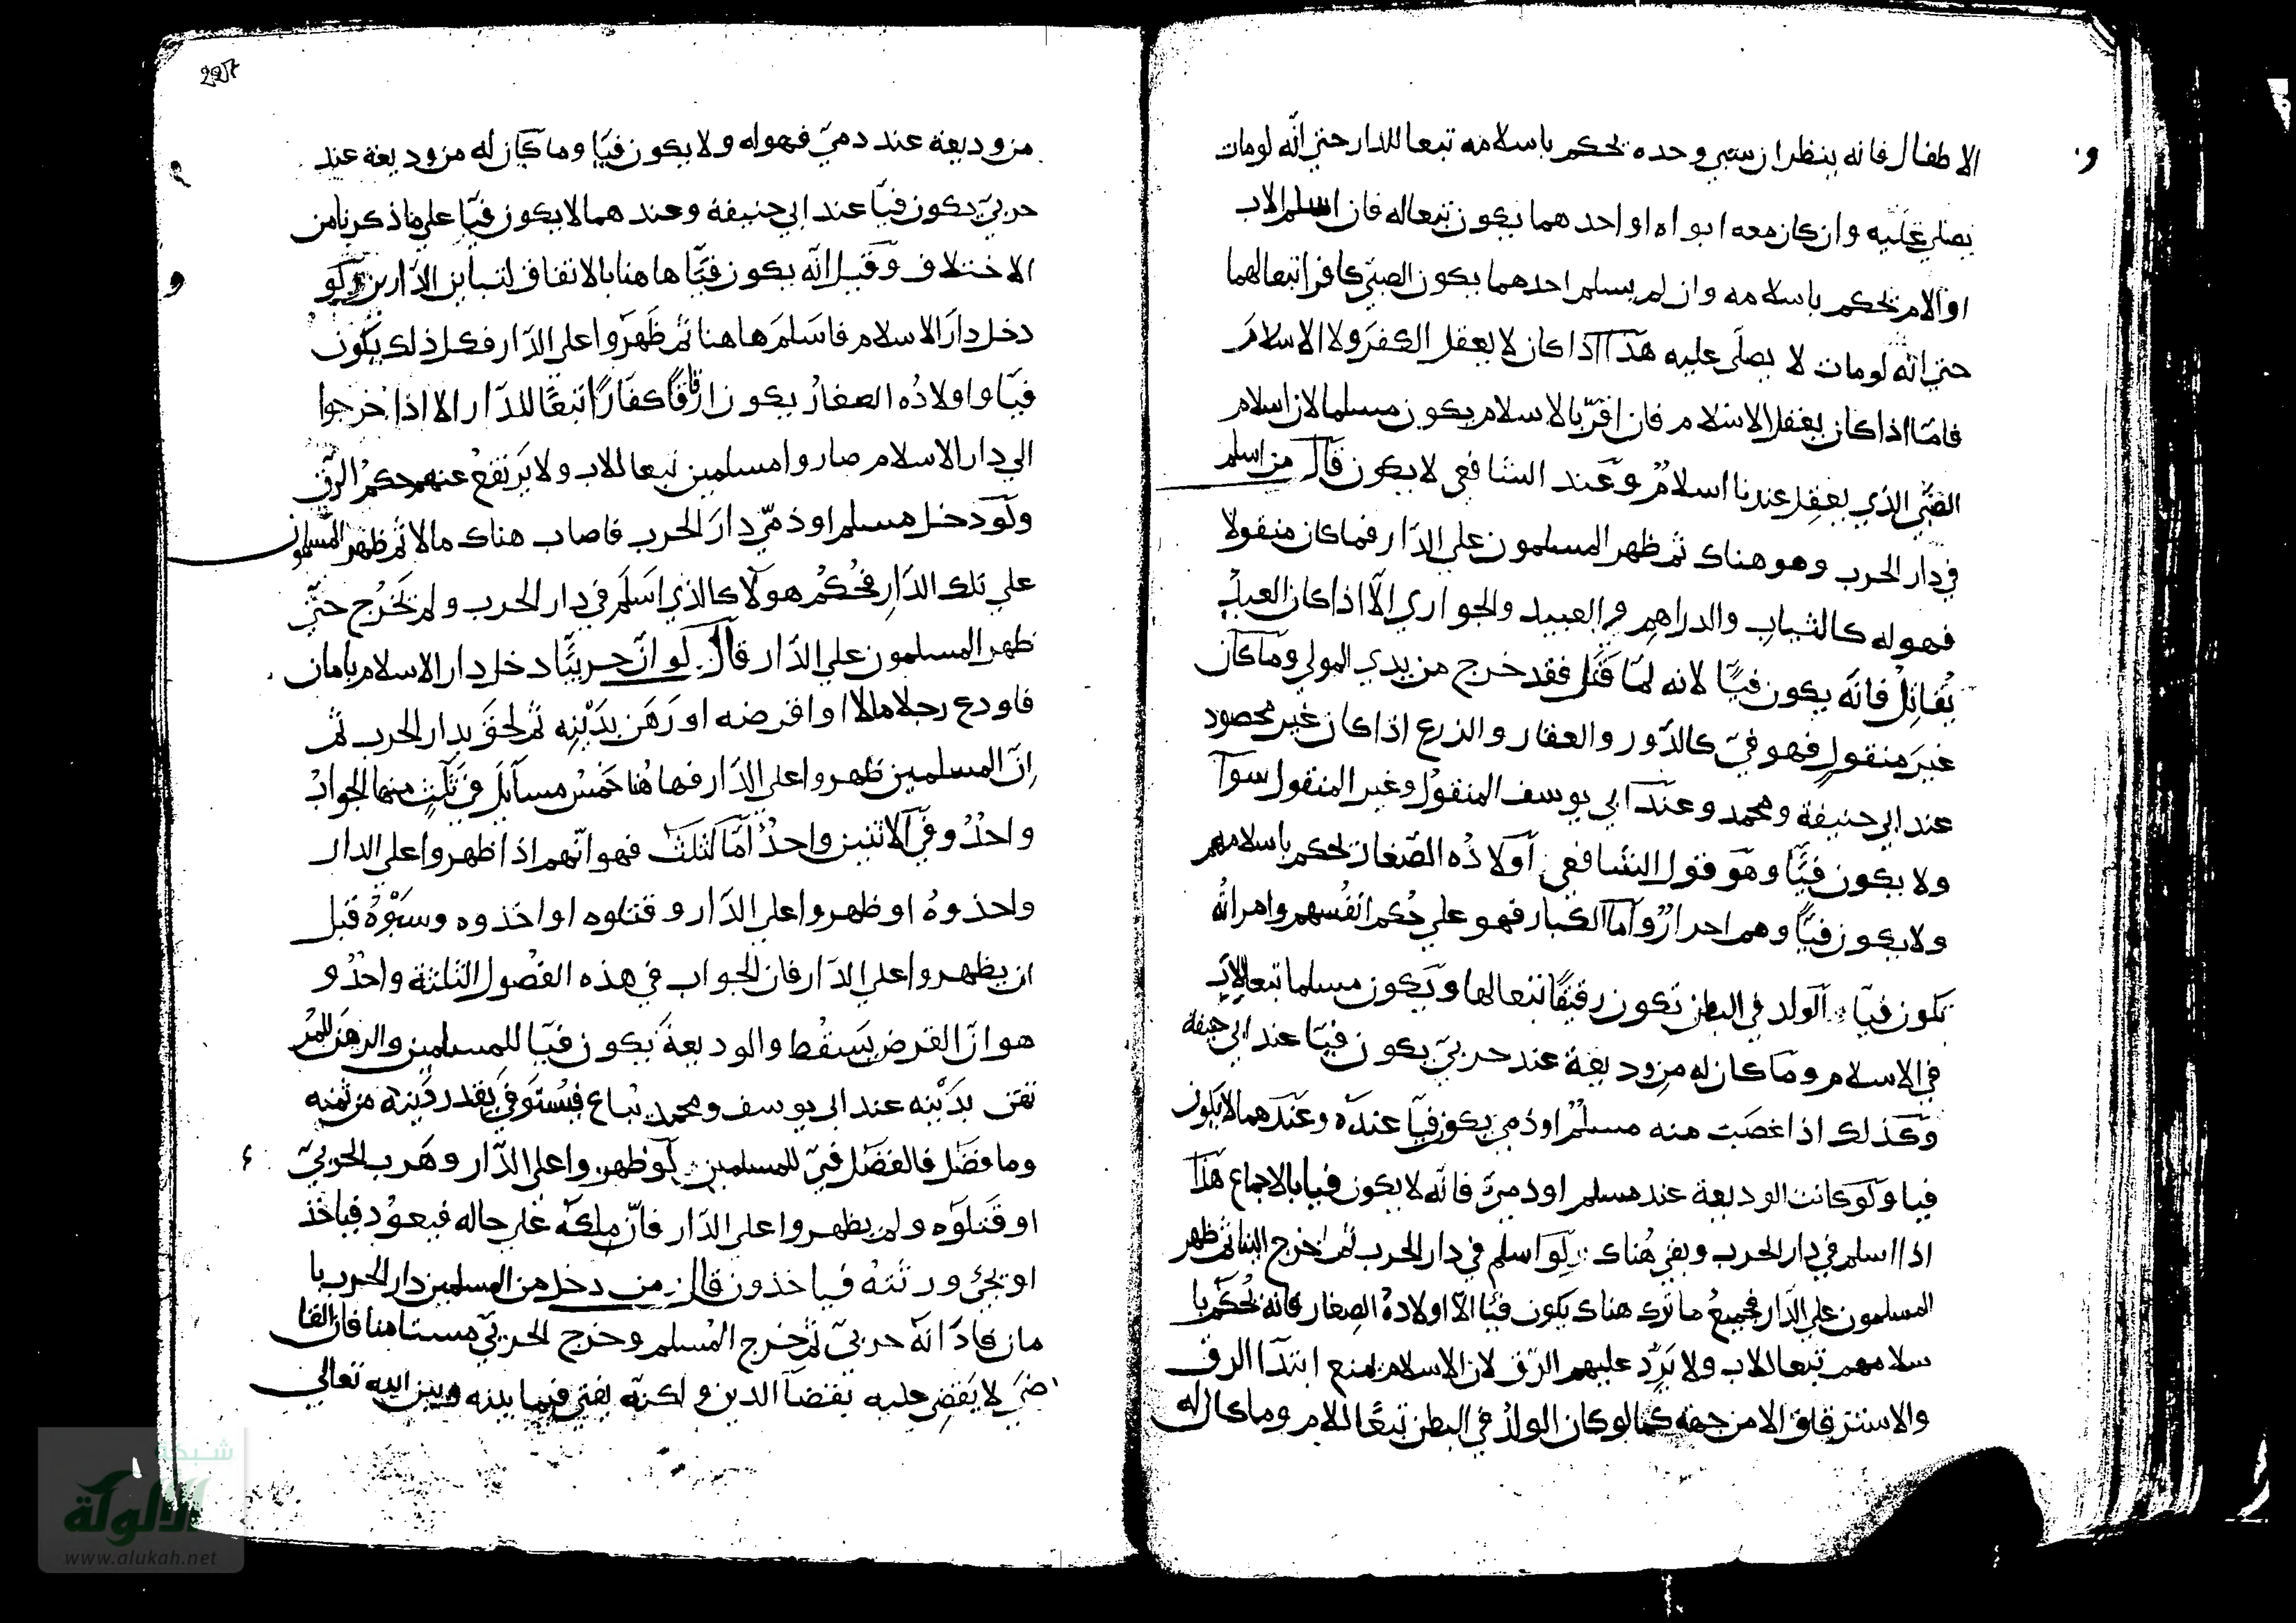 الاطفال فانه ينظر ان سبي وحده يحكم باسلامه تبعا للدار حتي انّه لومات
يصلي عليه وان كان معه ابواه او احدهما يكون تبعا له فان اسلم الاب
او الام يحكم باسلامه وان لم يسلم احدهما يكون الصبي كافرا تبعا لهما
حتي انّه لومات لا يصلّي عليه هذا اذا كان لا يعقل الكفرَ ولا الاسلامَ
فامّا اذا كان يعقل الاسلام فان اقرّ بالاسلام يكون مسلما لان اسلام
الصّبي الذي يعقل عندنا اسلامٌ وعند الشافعي لا يكون قال من اسلم
في دار الحرب وهو هناك ثم ظهر المسلمون علي الدّار فما كان منقولا
فهو له كالثياب والدراهم والعبيد والجواري الّا اذا كان العبدُ
يُقاتِلُ فانّه يكون فيئًا لانه لمّا قتل فقد خرج من يدي المولي وما كان
غيرَ منقولٍ فهو فيّ كالدّور والعقار والزرع اذا كان غير محصود
عند ابي حنيفة ومحمد وعند ابي يوسف المنقول وغير المنقول سوآ
ولا يكون فيئًا وهو قول الشافعي اولاده الصّغار يحكم باسلامهم
ولا يكون فيئًا وهم احرارٌ وامّا الكبار فهو علي حكم انفسهم وامراته
تكون فيئا الولد في البطن تكون رقيقًا تبعا لها ويكون مسلما تبعا للاب
في الاسلام وما كان له من وديعة عند حربيّ يكون فيئا عند ابي حنيفة
وكذلك اذا غصبت منه مسلمٌ او ذمي يكون فيئا عنده وعندهما لا يكون
فيا ولو كانت الوديعة عند مسلم او ذمي فانّه لا يكون فيا بالاجماع هذا
اذا اسلم في دار الحرب وبقي هُناك لو اسلم في دار الحرب ثم اخرج الينا ثم ظهر
المسلمون علي الدّار فجميعُ ما ترك هناك يكون فيئا الّا اولادهُ الصغار فانه يُحكم با
سلامهم تبعا للاب ولا يَرِد عليهم الرّق لان الاسلام يمنع ابتدآ الرق
والاسترقاق الا من جهة كما لو كان الولدُ في البطن تبعًا للام وما كان له
227
من وديعة عند دميّ فهو له ولا يكون فيئا وما كان له من وديعة عند
حربيّ يكون فيئا عند ابي حنيفة وعندهما لا يكون فيئا علي ما ذكرنا من
الاختلاف وقيل انّه يكون فيئًا هاهنا بالاتفاق لتباين الدّارين ولو
دخل دارَ الاسلام فاسَلمَ هاهنا ثم ظَهَروا علي الدّار فكل ذلك يكون
فيئا واولاده الصغارُ يكون ارقاقًا كفارًا تبعًا للدّار الا اذا خرجوا
الي دار الاسلام صاروا مسلمين تبعا للاب ولا يَرتفعُ عنهم حكمُ الرّق
ولَو دخل مسلم او ذمّي دارَ الحرب فاصاب هناك مالا ثم ظهر المسلمون
علي تلك الدّار فحُكمُ هولآ كالذي اسَلَم في دار الحرب ولم يَخرُج حتّي
ظهر المسلمون علي الدّار قال لو انّ حربيًّا دخل دار الاسلام بامان
فاودع رجلا مالا او اقرضه او رَهَن بدَيْنِه ثم لحقَ بدار الحرب ثم
اِنّ المسلمين ظهروا علي الدّار فهاهُنا خَمسُ مسآئل في ثلثٍ منها الجوابُ
واحدٌ وفي الاثنين واحدٌ امّا الثلث فهو انّهم اذا ظهروا علي الدار
واخذوهُ او ظهروا علي الدّار وقتلوه او اخذوه وسبَوْهُ قبل
ان يظهروا علي الدّار فان الجواب في هذه الفصول الثلثة واحدٌ و
هو انّ القرض يَسقُط والوديعةَ يكون فيئا للمسلمين والرهَن للمر
تهن بدَيْنِه عند ابي يوسف ومحمد يُباع فيُستوفي بقدر دَينه من ثمنه
وما فضل فالفضل فيّ للمسلمين لو ظهروا علي الدّار وهَرب الحربيّ
او قَتلوه ولم يظهروا علي الدّار فانّ ملكَه علي حاله فيعود فياخذ
او يجئ ورثتهُ فياخذون قال من دخل من المسلمين دار الحرب با
مان فادَانهَ حربيّ ثم خرج المُسلم وخرج الحربيّ مستامنا فان القا
ضيَ لا يَقضِي عليه بقضآ الدين ولكنّه يفتي فيما بينه وبين الله تعالي
شبكة
الألوكة
www.alukah.net